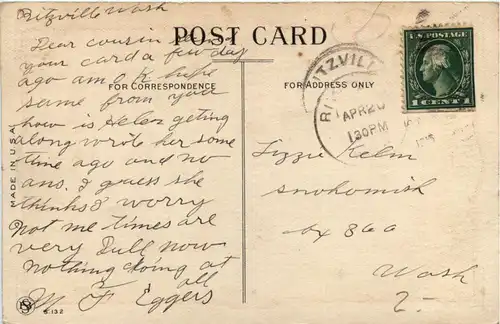 Ritzville Wash
POST CARD
Dear cousin
your card a few day
ago am O K hope
FOR CORRESPONDENCE
same from you
how is Helen geting
along wrote her some
time ago and no
ans. I guess she
thinks I worry
Not me times are
very Dull now
nothing doing at
all
M F Eggers
MADE IN U.S.A.
S 132
FOR ADDRESS ONLY
RITZVILL
APR 20
130PM
U.S. POSTAGE
1 CENT 1
Lizzie Kelm
snohomish
Bx 866
Wash